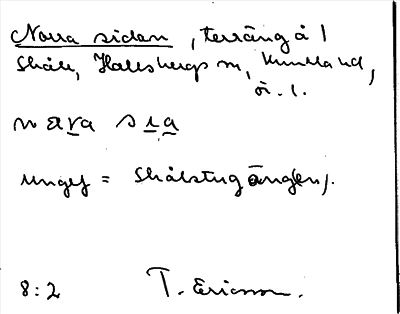 Norra sidan, terräng å 1
Skåle, Hallsbergs sn, Kumla hd,
ö. l.
nara sia
ungef = Skålstugängen,.
8:2 T. Ericsson.